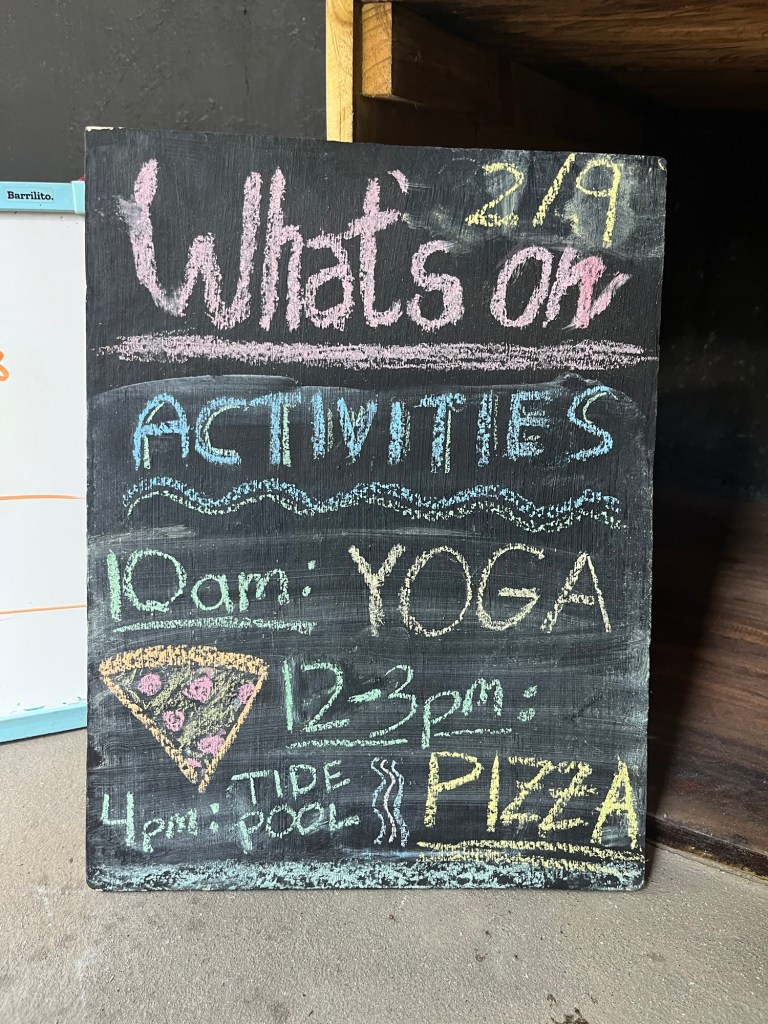 Barrilito.
2/9
What's on
ACTIVITIES
10am: YOGA
12-3pm:
PIZZA
4pm: TIDE
POOL